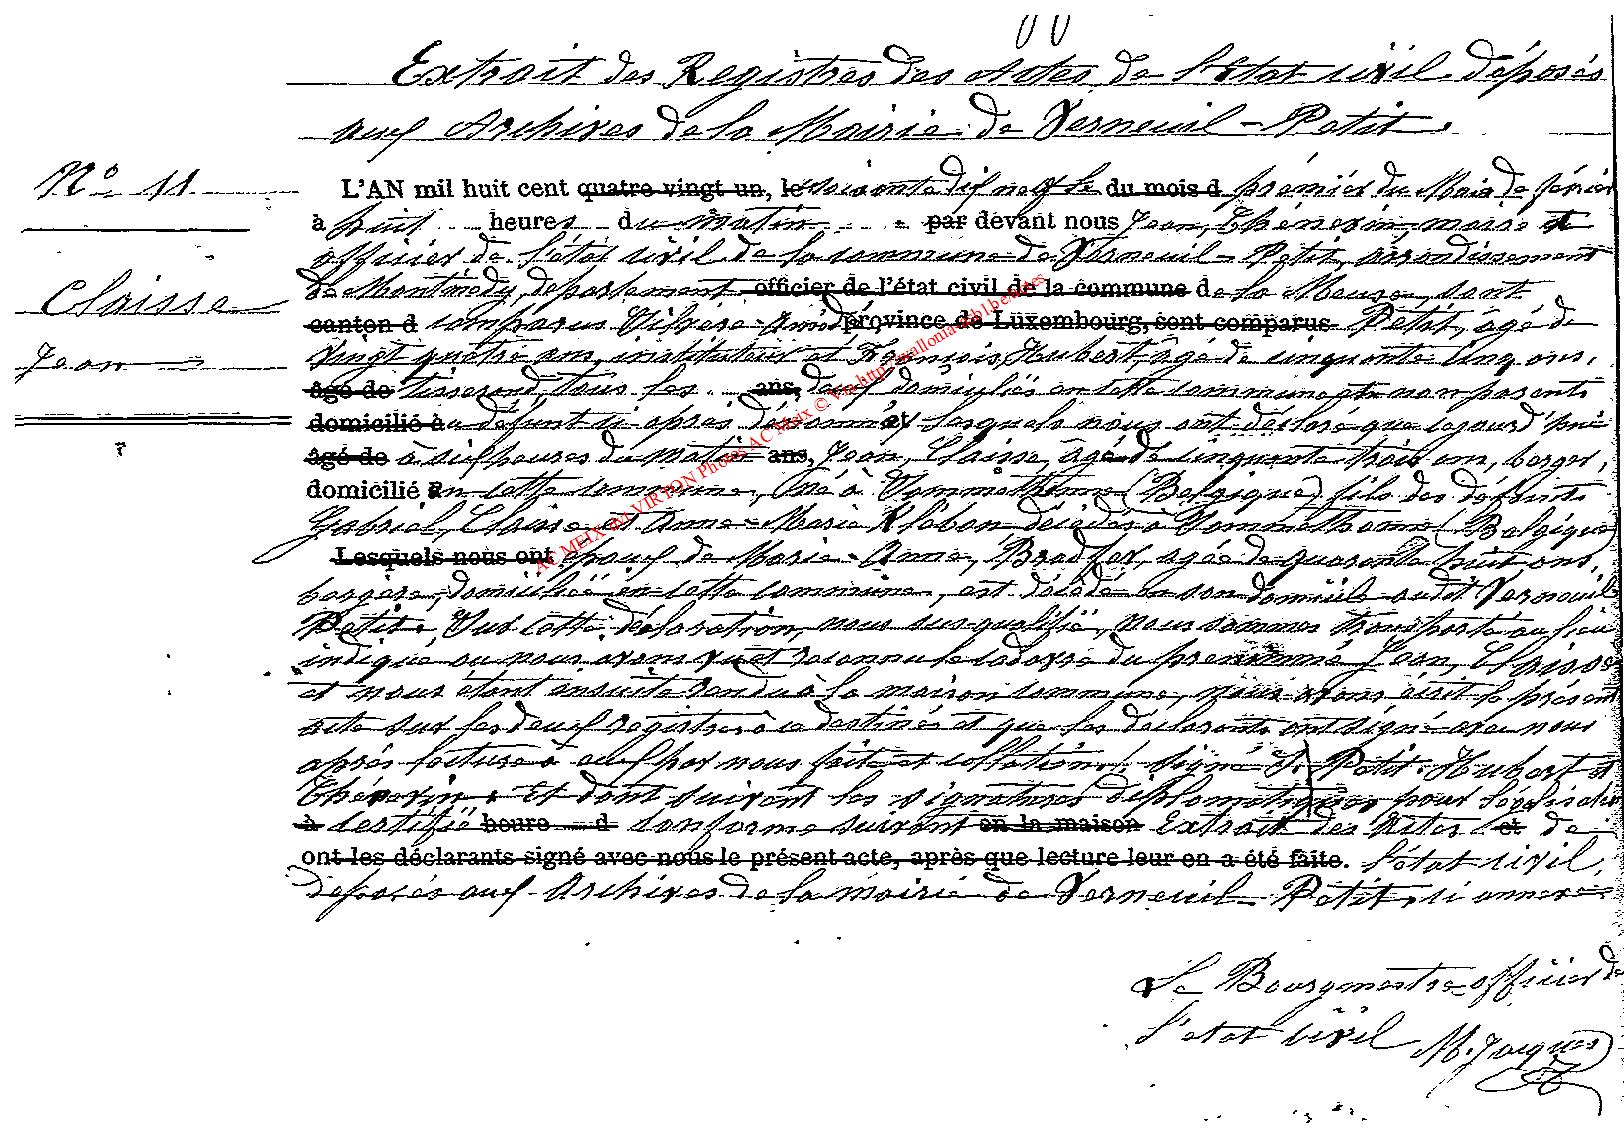 Extrait des Registres des Actes de l'Etat civil déposés
aux Archives de la Mairie de Verneuil-Petit.
N° 11
L'AN mil huit cent quatre vingt un, le soixante dix neuf le du mois d premier du Mois de février
à huit heures du matin par devant nous Jean, Thénevin, maire et
officier de l'état civil de la commune de Verneuil-Petit, arrondissement
Claisse
Jean
de Montmédy, departement officier de l'état civil de la commune de la Meuse, sont
canton d comparus province de Luxembourg, sont comparus Petit, âgé de
vingt quatre ans, instituteur et François, Hubert, âgé de cinquante cinq ans,
âgé de tisserand, tous les ans, deux domiciliés en cette commune et non parents
domicilié à au défunt ci après dénommé, lesquels nous ont déclaré que cejourd'hui
âgé de à six heures du matin ans, Jean, Claisse, âgé de cinquante trois ans, berger,
domicilié en cette commune, né à Sommethonne (Belgique) fils des défunts
Gabriel, Claisse et Anne-Marie décédés à Sommethonne (Belgique)
Lesquels nous ont époux de Marie-Anne, agée de quarante huit ans,
bergère, domiciliée en cette commune, est décédé en son domicile audit Verneuil
Petit. Vue cette déclaration, nous susqualifié, nous sommes transporté au lieu
indiqué ou nous avons vu et reconnu le cadavre du prénommé Jean, Claisse
et nous étant ensuite rendu à la maison commune, nous avons écrit le présent
acte sur les deux registres à ce destinés et que les déclarants ont signé avec nous
après lecture à eux par nous faite et collation. Signé J. Petit. Hubert et
Thénevin. Et dont suivent les signatures diplomatiques pour légalisation
à certifié heure d conforme suivant en la maison Extrait des Actes et de
ont les déclarants signé avec nous le présent acte, après que lecture leur en a été faite. l'état civil,
déposés aux Archives de la mairie de Verneuil-Petit, ci annexé
Le Bourgmestre officier de
l'etat civil M. Jacques
AC MEIX-dvt VIRTON Photos AC Meix © Via http://